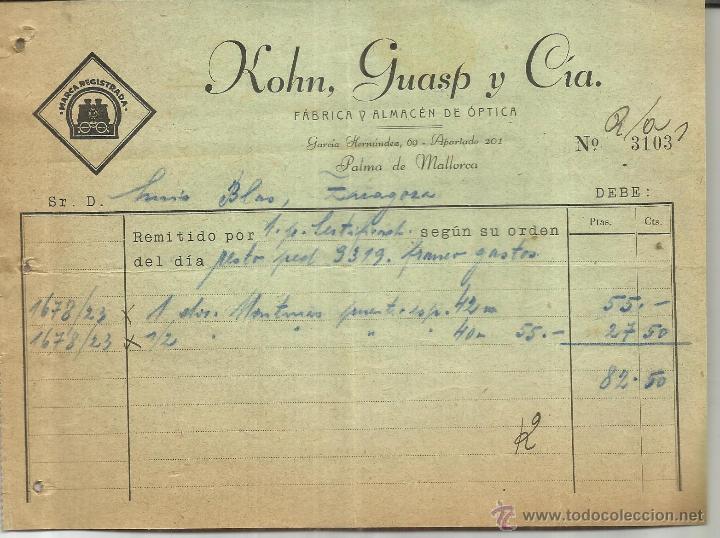 MARCA REGISTRADA
Kohn, Guasp y Cía.
FÁBRICA Y ALMACÉN DE ÓPTICA
García Hernández, 69 - Apartado 201
Palma de Mallorca
Nº 3103
Sr. D. Blas, Zaragoza DEBE:
Ptas. Cts.
Remitido por 1. p. según su orden
del día resto ped 9319. franco gastos
1678/23 x 1 dos. Monturas puent. esp. 42 m 55.-
1678/23 x 1/2 " " " 40 m 55.- 27 50
82.50
www.todocoleccion.net